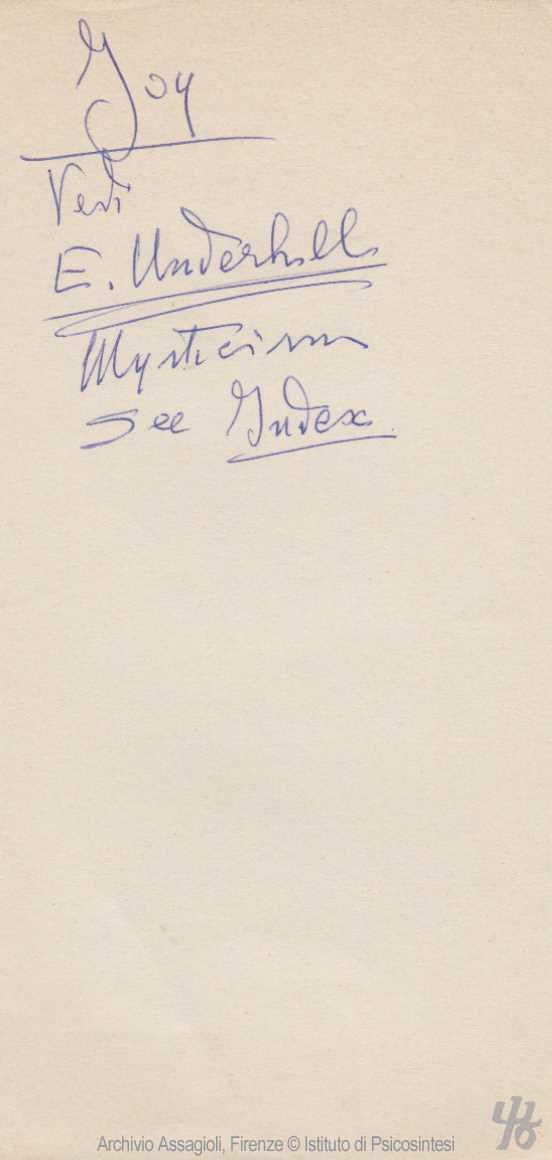 Joy
Vedi
E. Underhill
Mysticism
see Index
Archivio Assagioli, Firenze © Istituto di Psicosintesi